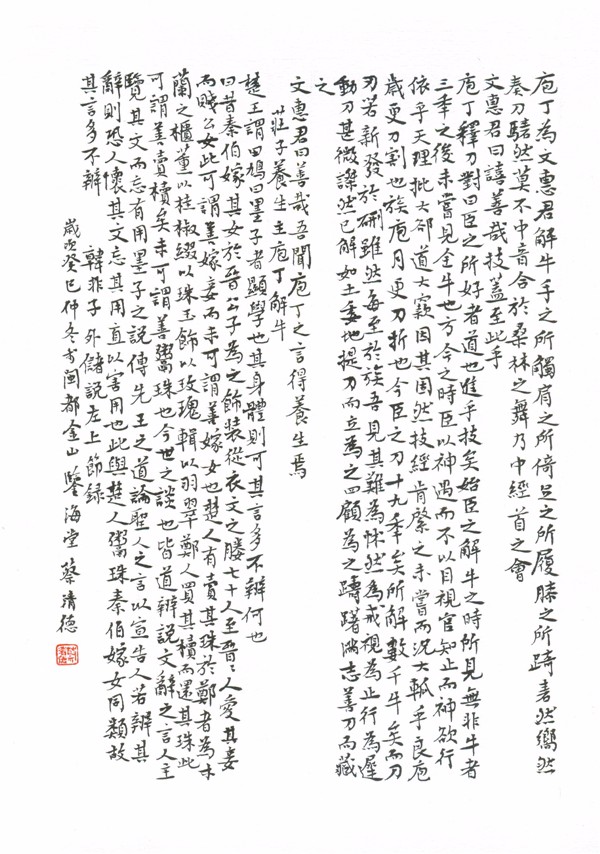 庖丁為文惠君解牛手之所觸肩之所倚足之所履膝之所踦砉然嚮然
奏刀騞然莫不中音合於桑林之舞乃中經首之會
文惠君曰譆善哉技蓋至此乎
庖丁釋刀對曰臣之所好者道也進乎技矣始臣之解牛之時所見無非牛者
三年之後未嘗見全牛也方今之時臣以神遇而不以目視官知止而神欲行
依乎天理批大郤道大窾因其固然技經肯綮之未嘗而況大軱乎良庖
歲更刀割也族庖月更刀折也今臣之刀十九年矣所解數千牛矣而刀
刃若新發於硎雖然每至於族吾見其難為怵然為戒視為止行為遲
動刀甚微謋然已解如土委地提刀而立為之四顧為之躊躇滿志善刀而藏
之
文惠君曰善哉吾聞庖丁之言得養生焉
莊子養生主庖丁解牛
楚王謂田鳩曰墨子者顯學也其身體則可其言多不辯何也
曰昔秦伯嫁其女於晉公子為之飾裝從衣文之媵七十人至晉晉人愛其妾
而賤公女此可謂善嫁妾而未可謂善嫁女也楚人有賣其珠於鄭者為木
蘭之櫃薰以桂椒綴以珠玉飾以玫瑰輯以羽翠鄭人買其櫝而還其珠此
可謂善賣櫝矣未可謂善鬻珠也今世之談也皆道辯說文辭之言人主
覽其文而忘有用墨子之說傳先王之道論聖人之言以宣告人若辯其
辭則恐人懷其文忘其用直以害用也此與楚人鬻珠秦伯嫁女同類故
其言多不辯
韓非子外儲說左上節錄
歲次癸巳仲冬於閩都金山鑒海堂蔡清德